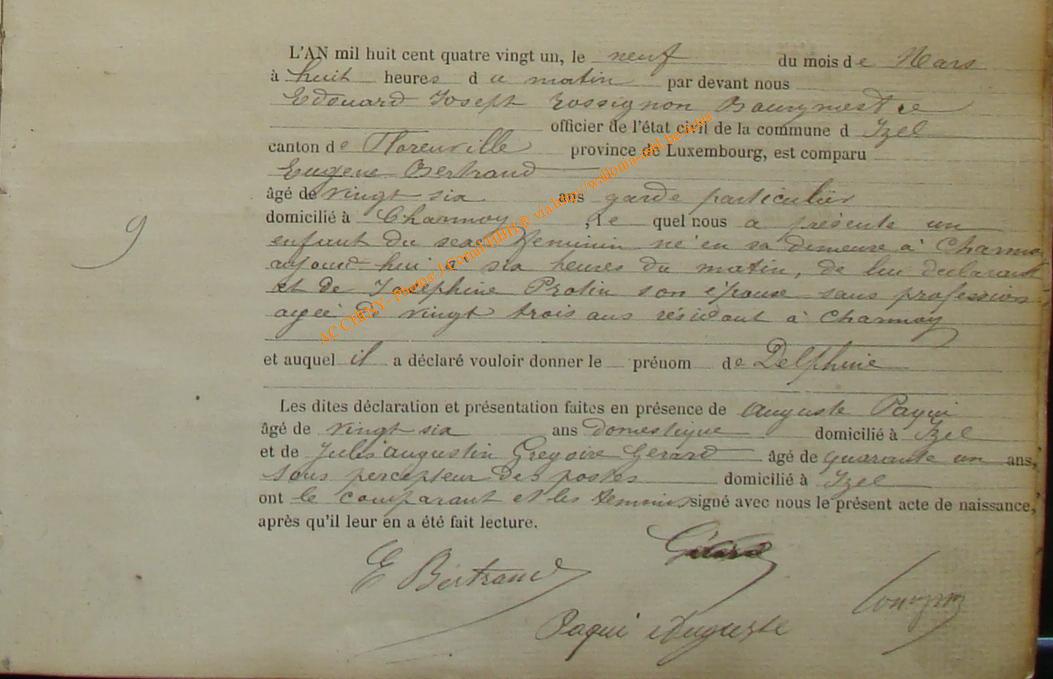 L'AN mil huit cent quatre vingt un, le neuf du mois de Mars
à huit heures du matin par devant nous
Edouard Joseph Rossignon Bourgmestre
officier de l'état civil de la commune d Izel
canton de Florenville province de Luxembourg, est comparu
Eugene Bertrand
âgé de vingt six ans garde particulier
domicilié à Charmoy, le quel nous a présenté un
9
enfant du sexe feminin né en sa demeure à Charmoy
aujourd'hui à six heures du matin, de lui déclarant
et de Joséphine Protin son épouse sans profession
agée de vingt trois ans résidant à Charmoy
et auquel il a déclaré vouloir donner le prénom de Delphine
Les dites déclaration et présentation faites en présence de Auguste Paqui
âgé de vingt six ans domestique domicilié à Izel
et de Jules Augustin Gregoire Gerard âgé de quarante un ans,
sous percepteur des postes domicilié à Izel
ont le comparant et les temoins signé avec nous le présent acte de naissance,
après qu'il leur en a été fait lecture.
Gérard
E Bertrand
Paqui Auguste